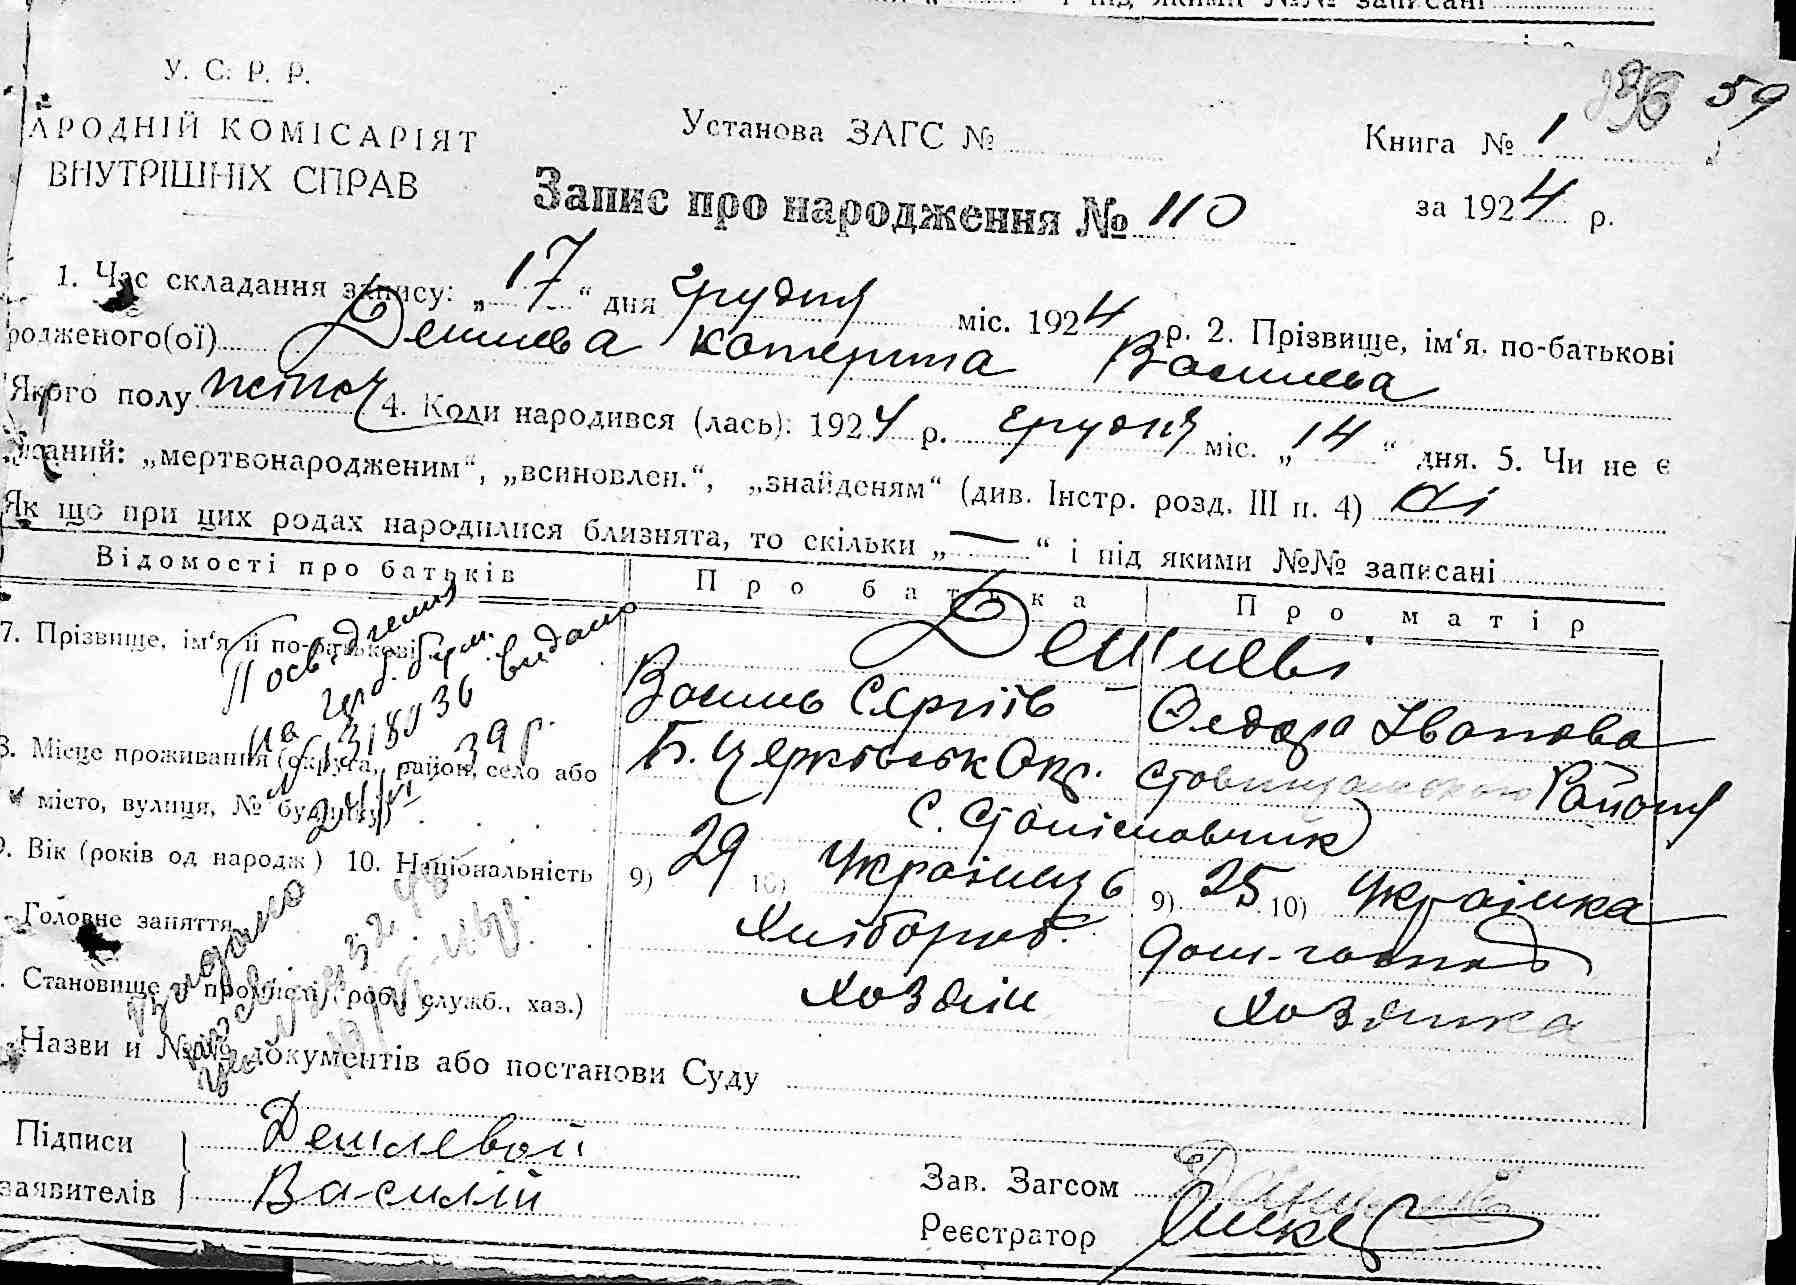 і під якими №№ записані
У. С. Р. Р.
АРОДНІЙ КОМІСАРІЯТ
ВНУТРІШНІХ СПРАВ
Установа ЗАГС №
Книга № 1
59
Запис про народження № 110
за 1924 р.
1. Час складання запису: „17“ дня грудня міс. 1924 р. 2. Прізвище, ім‘я. по-батькові
родженого(ої) Дешлева Катерина Васильева
Якого полу жіноч 4. Коли народився (лась): 1924 р. грудня міс. „14“ дня. 5. Чи не є
узаний: „мертвонародженим“, „всиновлен.“, „знайденям“ (див. Інстр. розд. III п. 4) ні
Як що при цих родах народилися близнята, то скільки „—“ і під якими №№ записані
Відомості про батьків Про батька Про матір
7. Прізвище, ім‘я й по-батькові Дешлеві
Василь Сергіїв Федора Іванова
Посвідчення
на герб. бум.
видано
39 р.
8. Місце проживання (округа, район, село або Б. Церківськ Окр. Ставищанського Району
місто, вулиця, № будинку) с. Станіславчик
9. Вік (років од народж) 10. Національність 9) 29 10) Українець 9) 25 10) Українка
Головне заняття Хлібороб. Дом-господ
Становище в промислі (роб., служб., хаз.) Хозяїн Хозяйка
Видано
Назви и №№ документів або постанови Суду
Підписи Дешлевой
заявителів Василій
Зав. Загсом
Реєстратор